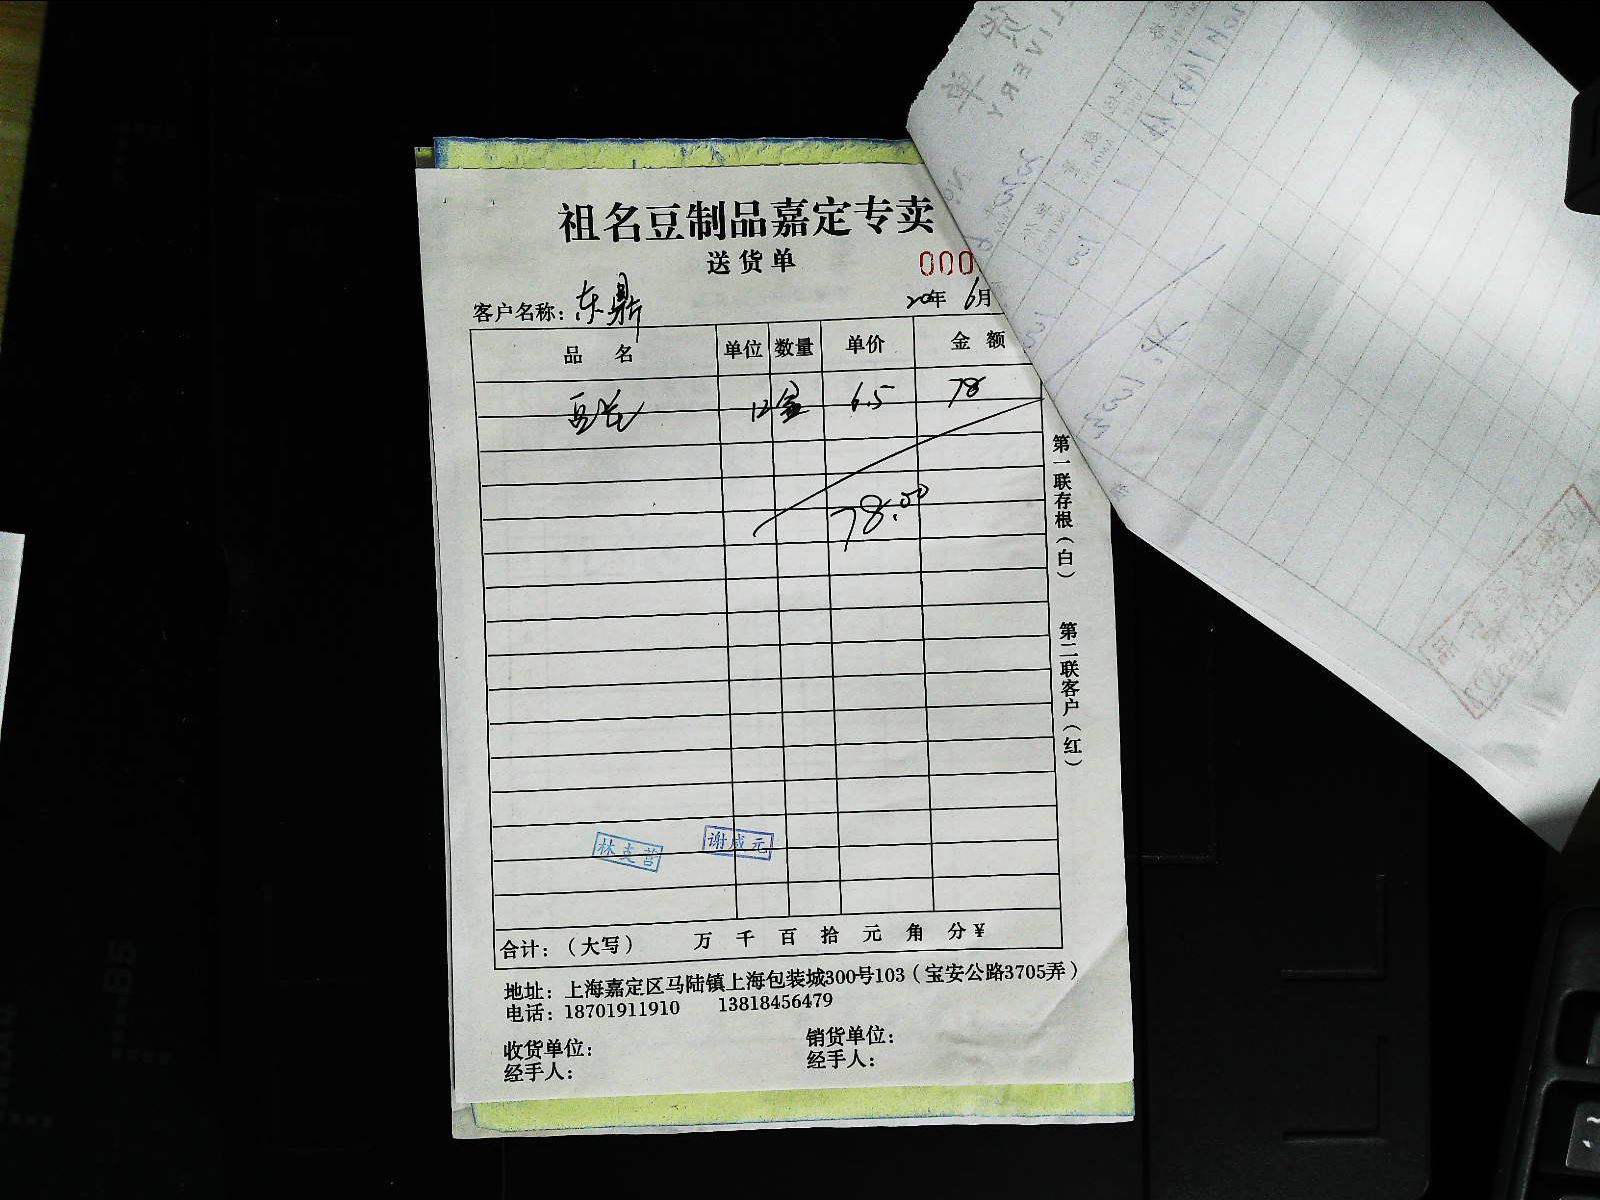 祖名豆制品嘉定专卖
送货单
000
客户名称：东鼎
20年 6月
品 名 单位 数量 单价 金 额
豆 12盒 6.5 78
78.00
第一联存根（白）
第二联客户（红）
谢咸元
合计：（大写） 万 千 百 拾 元 角 分 ¥
地址：上海嘉定区马陆镇上海包装城300号103（宝安公路3705弄）
电话：18701911910 13818456479
收货单位：
销货单位：
经手人：
经手人：